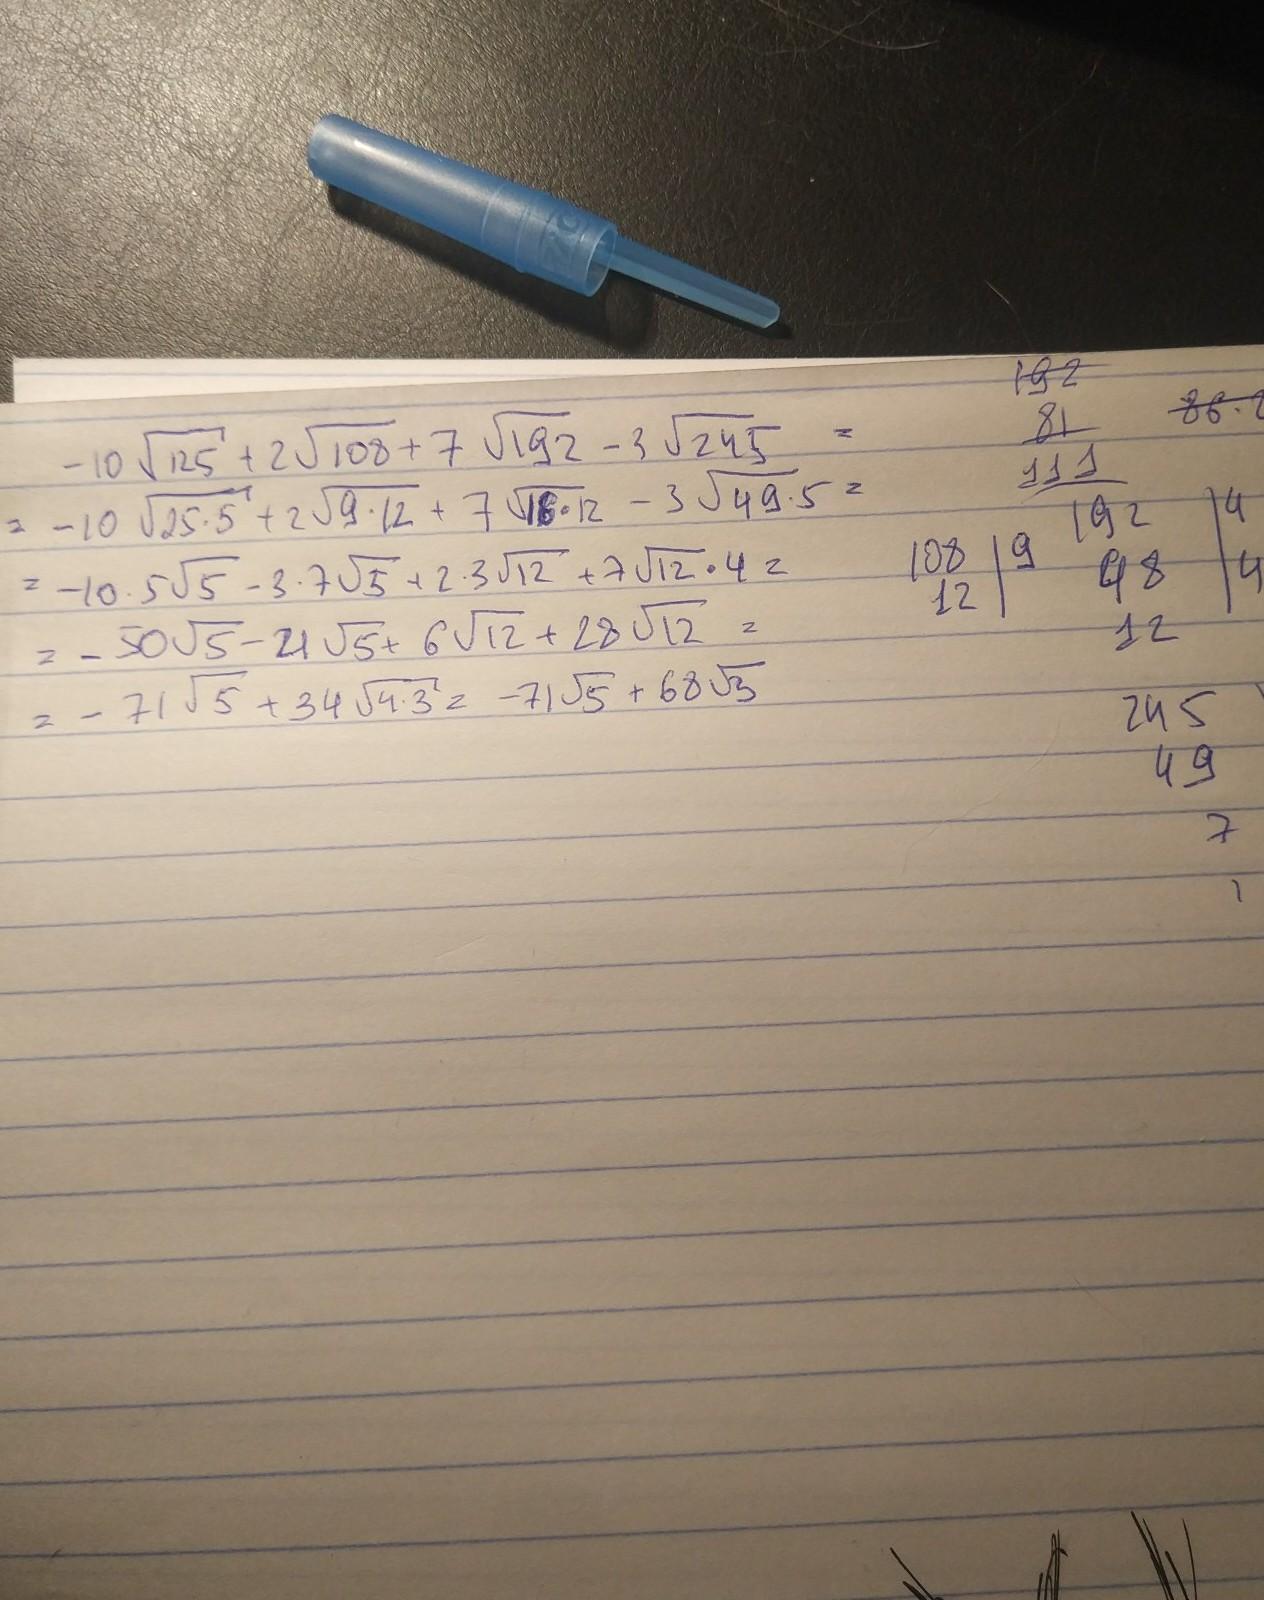 -10√125 + 2√108 + 7√192 - 3√245 =
= -10√25·5 + 2√9·12 + 7√16·12 - 3√49·5 =
= -10·5√5 - 3·7√5 + 2·3√12 + 7√12·4 =
= - 50√5 - 21√5 + 6√12 + 28√12 =
= - 71√5 + 34√4·3 = -71√5 + 68√3
192
81
111
108 | 9
12
192 | 4
48 | 4
12
245
49
7
1